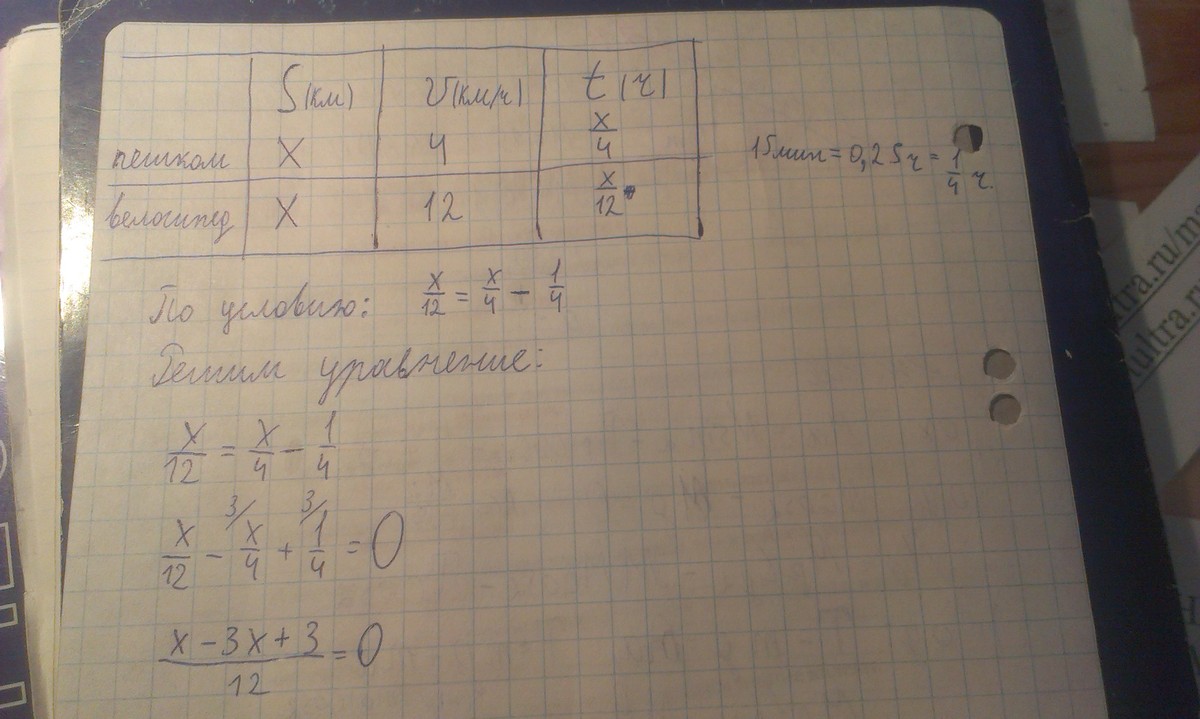 S(км) v(км/ч) t(ч)
пешком x 4 x/4
велосипед x 12 x/12
15мин = 0,25ч = 1/4 ч.
По условию: x/12 = x/4 − 1/4
Решим уравнение:
x/12 = x/4 − 1/4
x/12 − 3/ x/4 + 3/ 1/4 = 0
x − 3x + 3 / 12 = 0
ultra.ru/m
ultra.ru